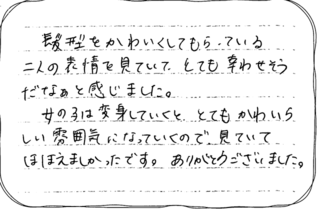 髪型をかわいくしてもらっている
二人の表情を見ていて、とても幸わせそう
だなぁと感じました。
女の子は変身していくと、とてもかわいら
しい雰囲気になっていくので、見ていて
ほほえましかったです。ありがとうございました。